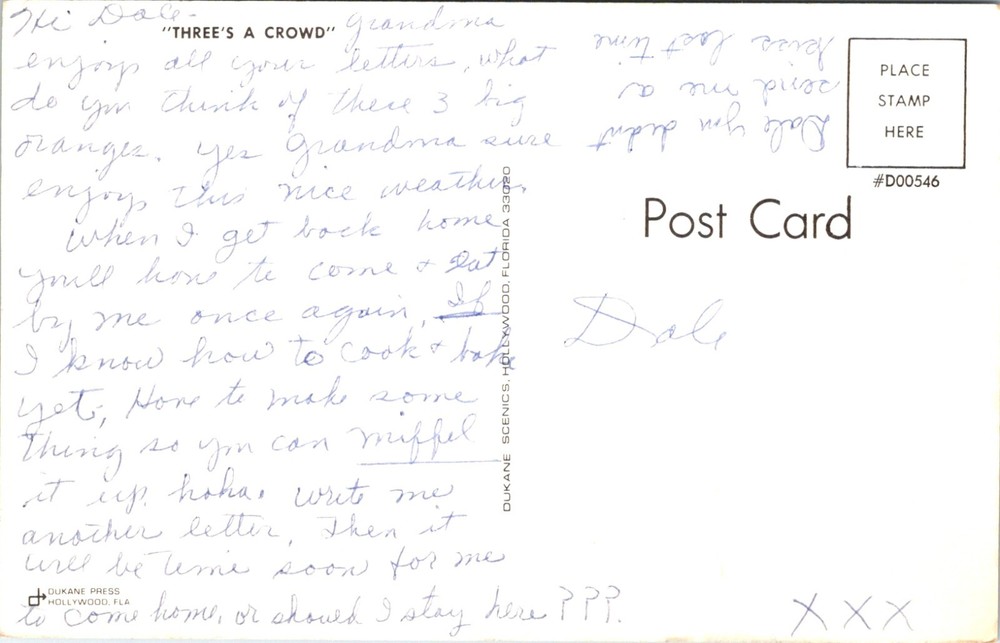 Hi Dale-
"THREE'S A CROWD"
Grandma
enjoys all your letters, what
do you think of these 3 big
oranges. Yes Grandma sure
enjoys this nice weather.
When I get back home
you'll have to come & eat
by me once again, If
I know how to cook & bake
yet, Have to make some
thing so you can miffel
it up. haha. Write me
another letter, Then it
will be time soon for me
to come home, or should I stay here ???.
XXX
Dale you didn't
send me a
kiss last time
PLACE
STAMP
HERE
#D00546
Post Card
Dale
DUKANE SCENICS, HOLLYWOOD, FLORIDA 33020
DUKANE PRESS
HOLLYWOOD, FLA